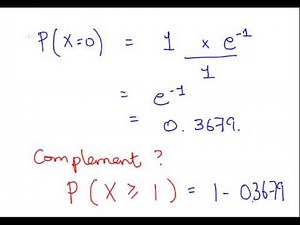 P(X=0) = 1 × e⁻¹ / 1
= e⁻¹
= 0.3679.
Complement ?
P(X ⩾ 1) = 1 - 0.3679